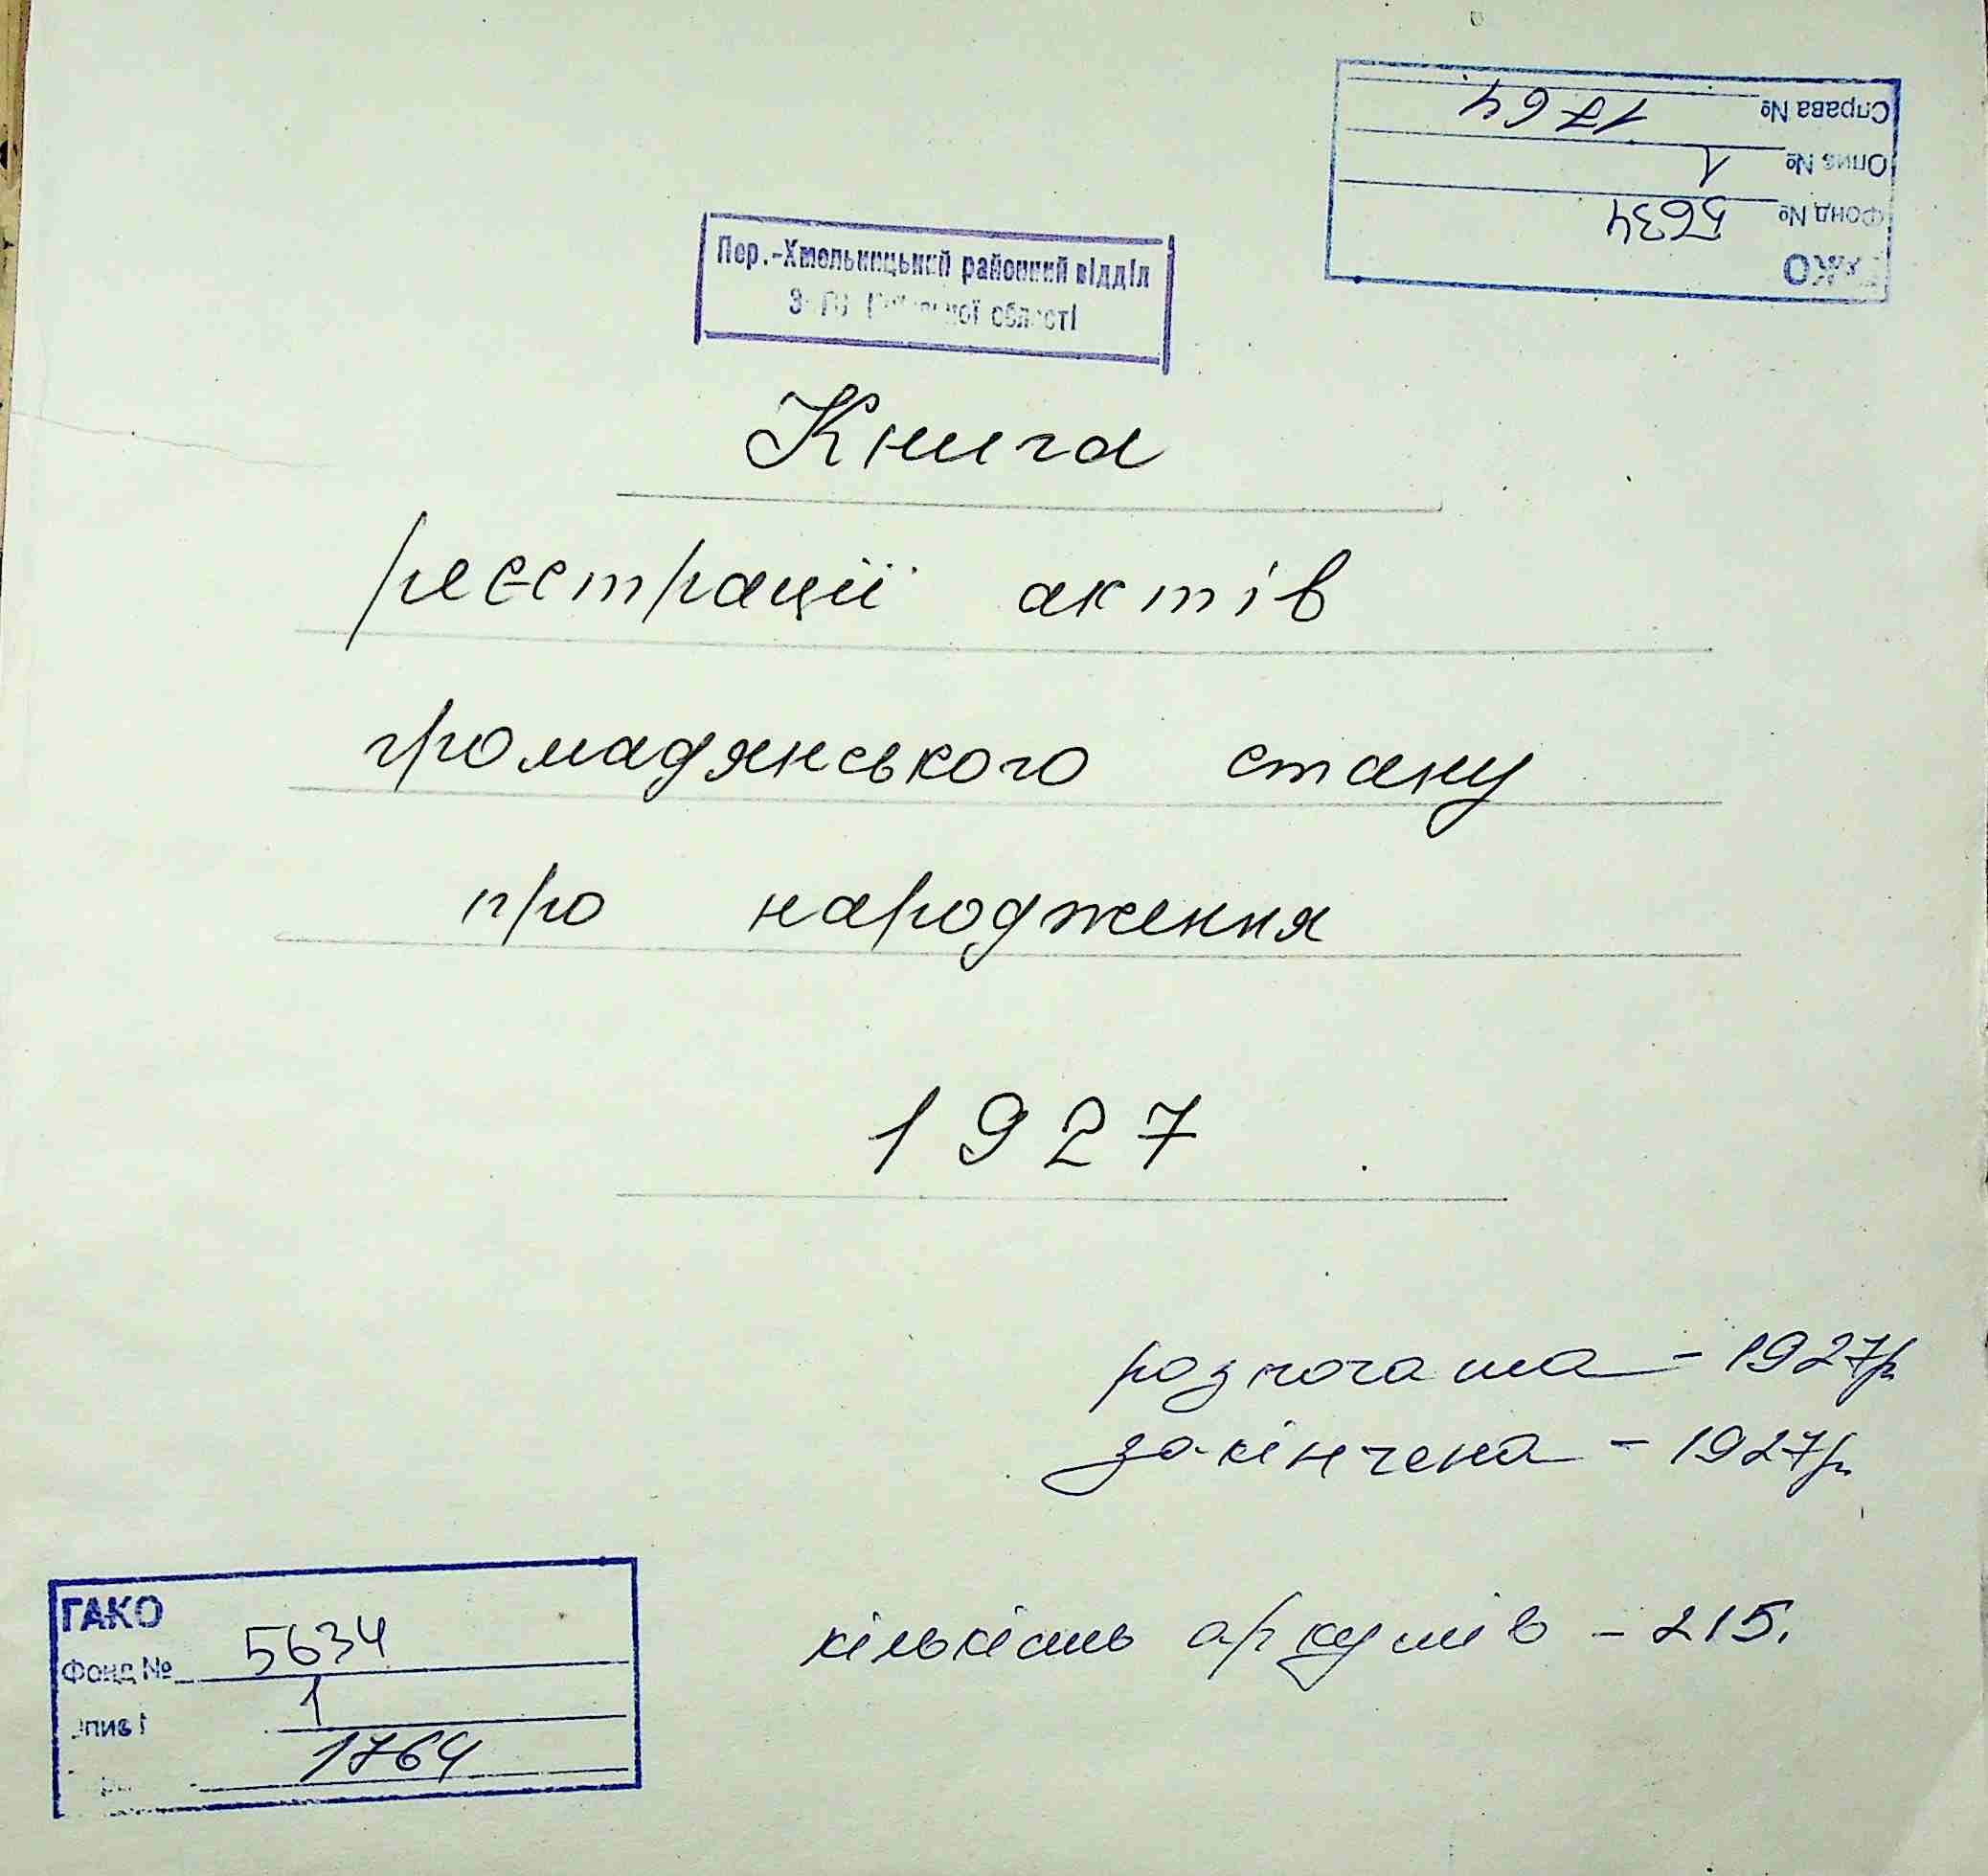 Справа № 1764
Опис № 1
Фонд № 5634
Пер.-Хмельницький районний відділ
області
Книга
реєстрації актів
громадянського стану
про народження
1927
розпочата - 1927р
закінчена - 1927р
кількість аркушів - 215.
ГАКО
Фонд № 5634
1
1764